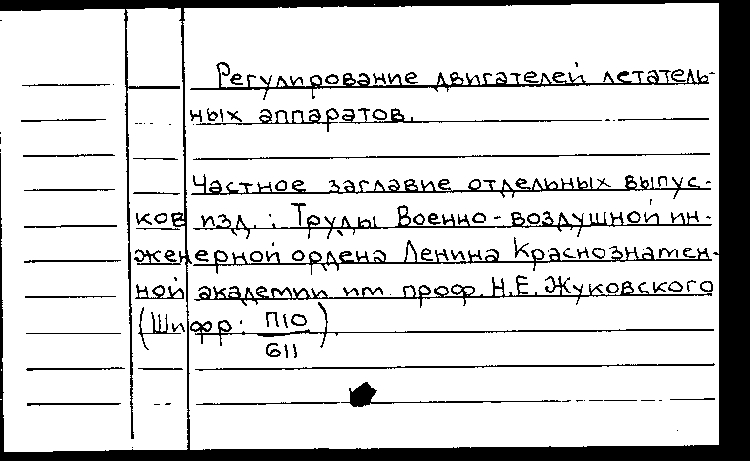 Регулирование двигателей летатель-
ных аппаратов.
Частное заглавие отдельных выпус-
ков изд.: Труды Военно-воздушной ин-
женерной ордена Ленина Краснознамен-
ной академии им проф. Н.Е. Жуковского
(Шифр: П10
611).